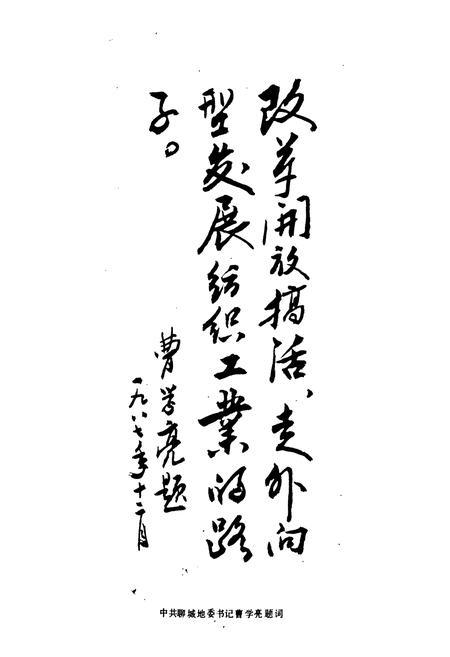 改革開放搞活、走外向
型发展纺织工业的路
子。
曹学亮题
一九八七年十二月
中共聊城地委书记曹学亮题词